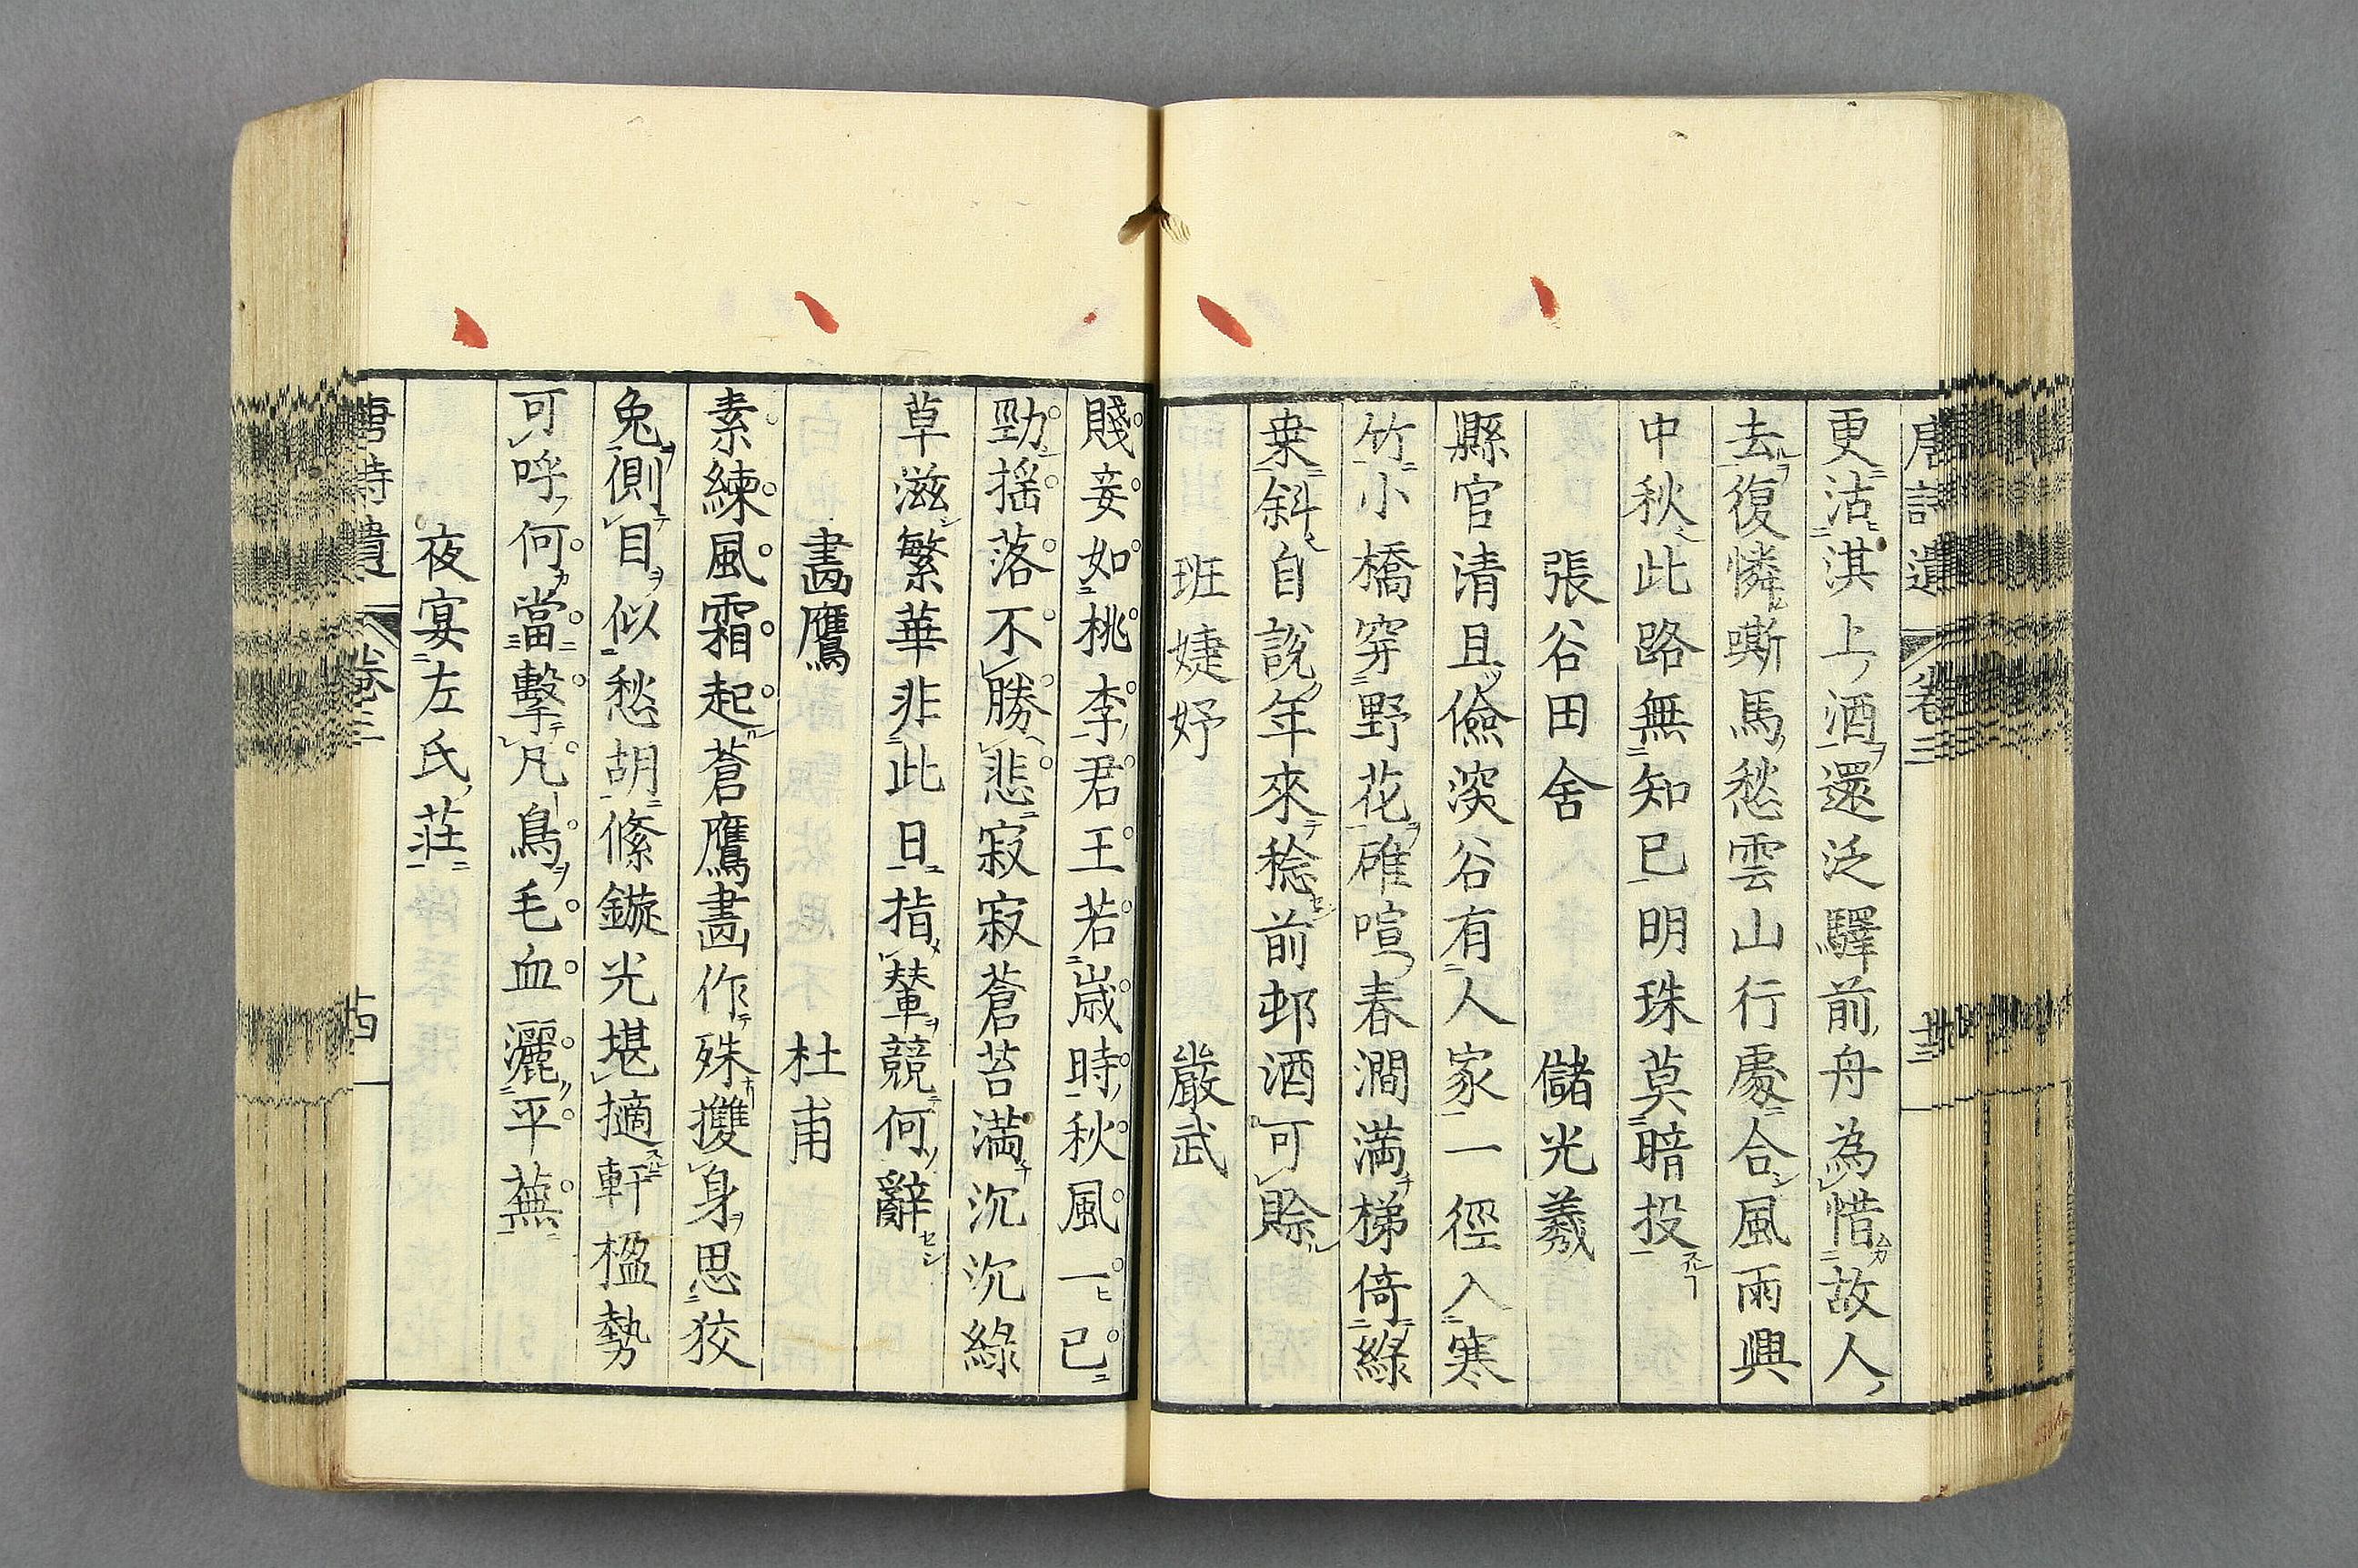 唐詩遺 卷三 十三
更沽淇上酒還泛驛前舟為惜故人
去復憐嘶馬愁雲山行處合風雨興
中秋此路無知已明珠莫暗投
張谷田舍 儲光羲
縣官清且儉深谷有人家一徑入寒
竹小橋穿野花碓喧春澗満梯倚綠
桒斜自說年來稔前邨酒可賒
班婕妤 嚴武
賤妾如桃李君王若歲時秋風一已
勁揺落不勝悲寂寂蒼苔満沉沉綠
草滋繁華非此日指輦競何辭
畫鷹 杜甫
素練風霜起蒼鷹畫作殊㩳身思狡
兔側目似愁胡絛鏇光堪擿軒楹勢
可呼何當擊凡鳥毛血灑平蕪
夜宴左氏莊
唐詩遺 卷三 十四